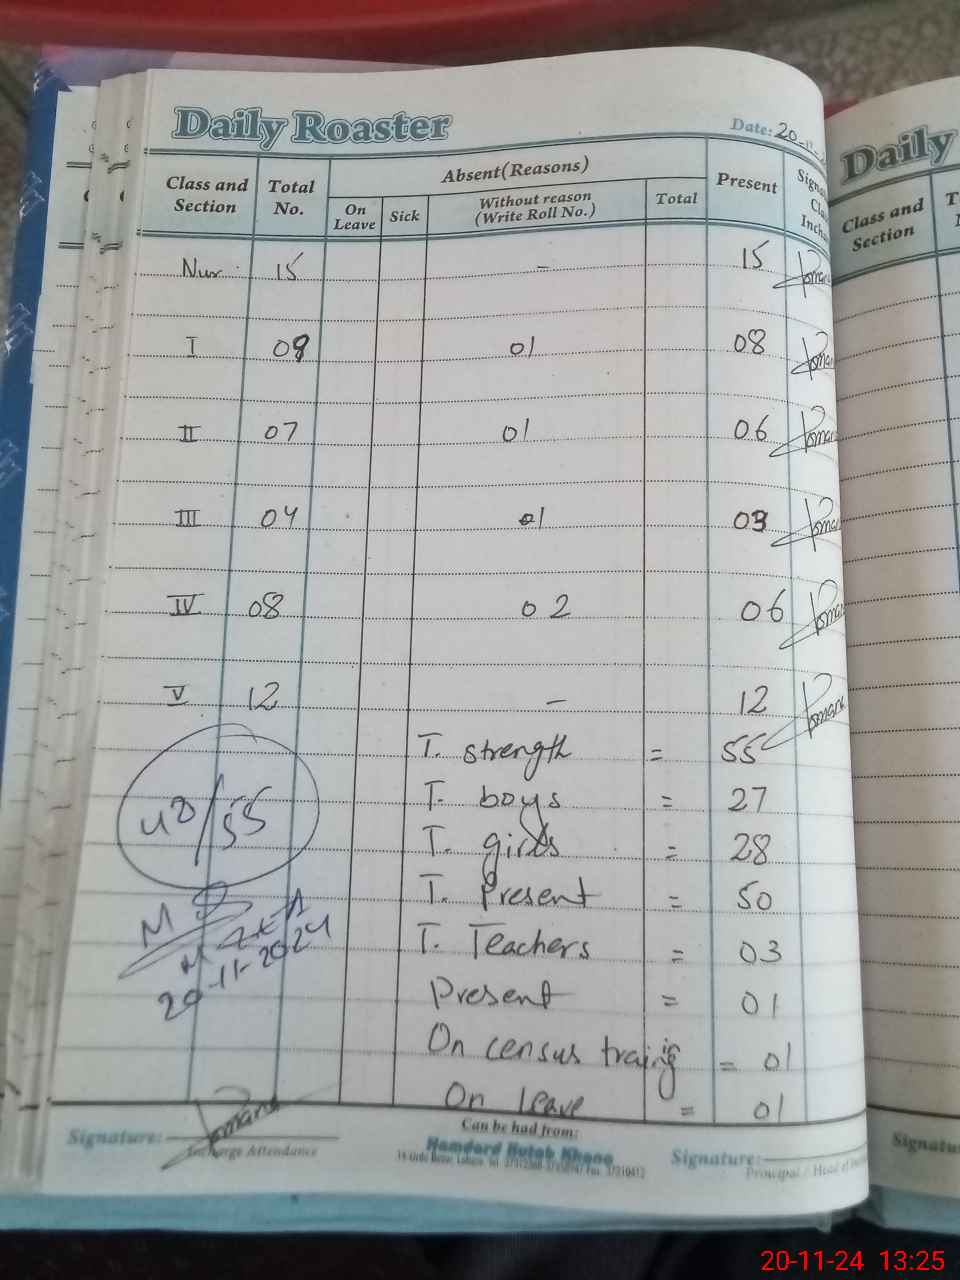 Daily Roaster
Date: 20-11-
Class and Section Total No. Absent(Reasons) Present
On Leave Sick Without reason (Write Roll No.) Total
Nur. 15 - 15
I 09 01 08
II 07 01 06
III 04 01 03
IV 08 02 06
V 12 - 12
T. strength = 55
T. boys = 27
T. girls = 28
T. Present = 50
T. Teachers = 03
Present = 01
On census traiing = 01
On leave = 01
48/55
20-11-2024
Signature:
Incharge Attendance
Can be had from:
Hamdard Kutab Khana
Signature:
Principal / Head of
Daily
Class and Section
Signatu
20-11-24 13:25